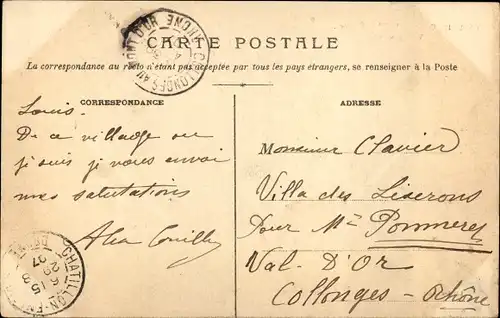 CARTE POSTALE
La correspondance au recto n'étant pas acceptée par tous les pays étrangers, se renseigner à la Poste
CORRESPONDANCE
ADRESSE
Louis.
De ce village ou
je suis je vous envoi
mes salutations
Monsieur Clavier
Villa des Liserons
Pour Mr Pommerey
Val. D'Or
Collonges - Rhône
COLLONGES AU MONT D'OR RHONE
CHATILLON-EN-
15-8